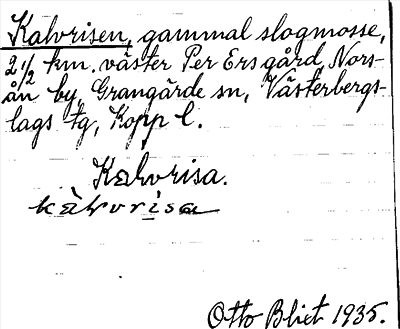 Kalvrisen, gammal slogmosse,
2 1/2 km. väster Per Ers gård, Nors-
ån by, Grangärde sn, Västerbergs-
lags tg, Kopp l.
Kalvrisa.
kàlvrisa
Otto Blixt 1935.